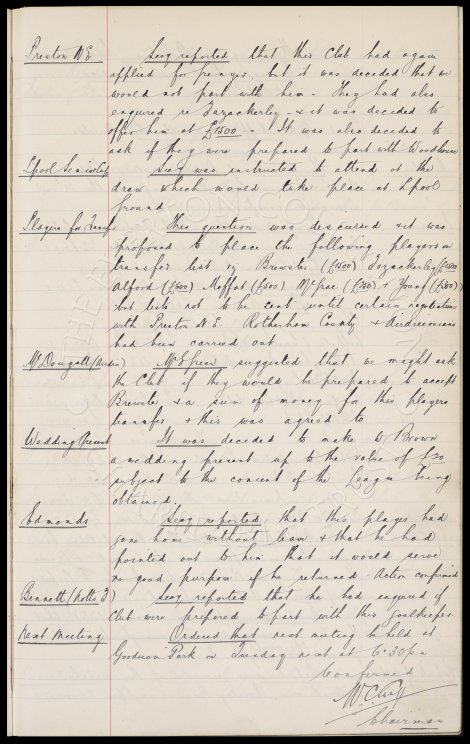 Preston N E. Secy reported that this Club had again
applied for Grenyer, but it was decided that we
would not part with him - They had also
enquired re Fazackerley - & it was decided to
offer him at £1500 - It was also decided to
ask if they were prepared to part with Woodhouse
Lpool Senior Cup Secy was instructed to attend at the
draw which would take place at Lpool
ground
Players for Transfer This question was discussed & it was
proposed to place the following players on
transfer list eg Brewster (£1500) Fazackerley (£1500)
Alford (£500) Moffat (£500) McGrae (£750) & Young (£500)
but lists not to be sent until certain negotiations
with Preston N E. Rotherham County & Airdrieonians
had been carried out
McDougall (Airdrie) Mr Green suggested that we might ask
the Club if they would be prepared to accept
Brewster & a sum of money for this players
transfer & this was agreed to
Wedding Present It was decided to make to Brown
a wedding present up to the value of £20
subject to the consent of the League being
obtained.
Edmonds Secy reported that this player had
gone home without leave & that he had
pointed out to him that it would serve
no good purpose if he returned. Action confirmed
Bennett (Notts F) Secy reported that he had enquired if
Club were prepared to part with this goalkeeper
Next Meeting Ordered that next meeting be held at
Goodison Park on Tuesday next at 6.30pm
Confirmed
W. C. Cuff
Chairman